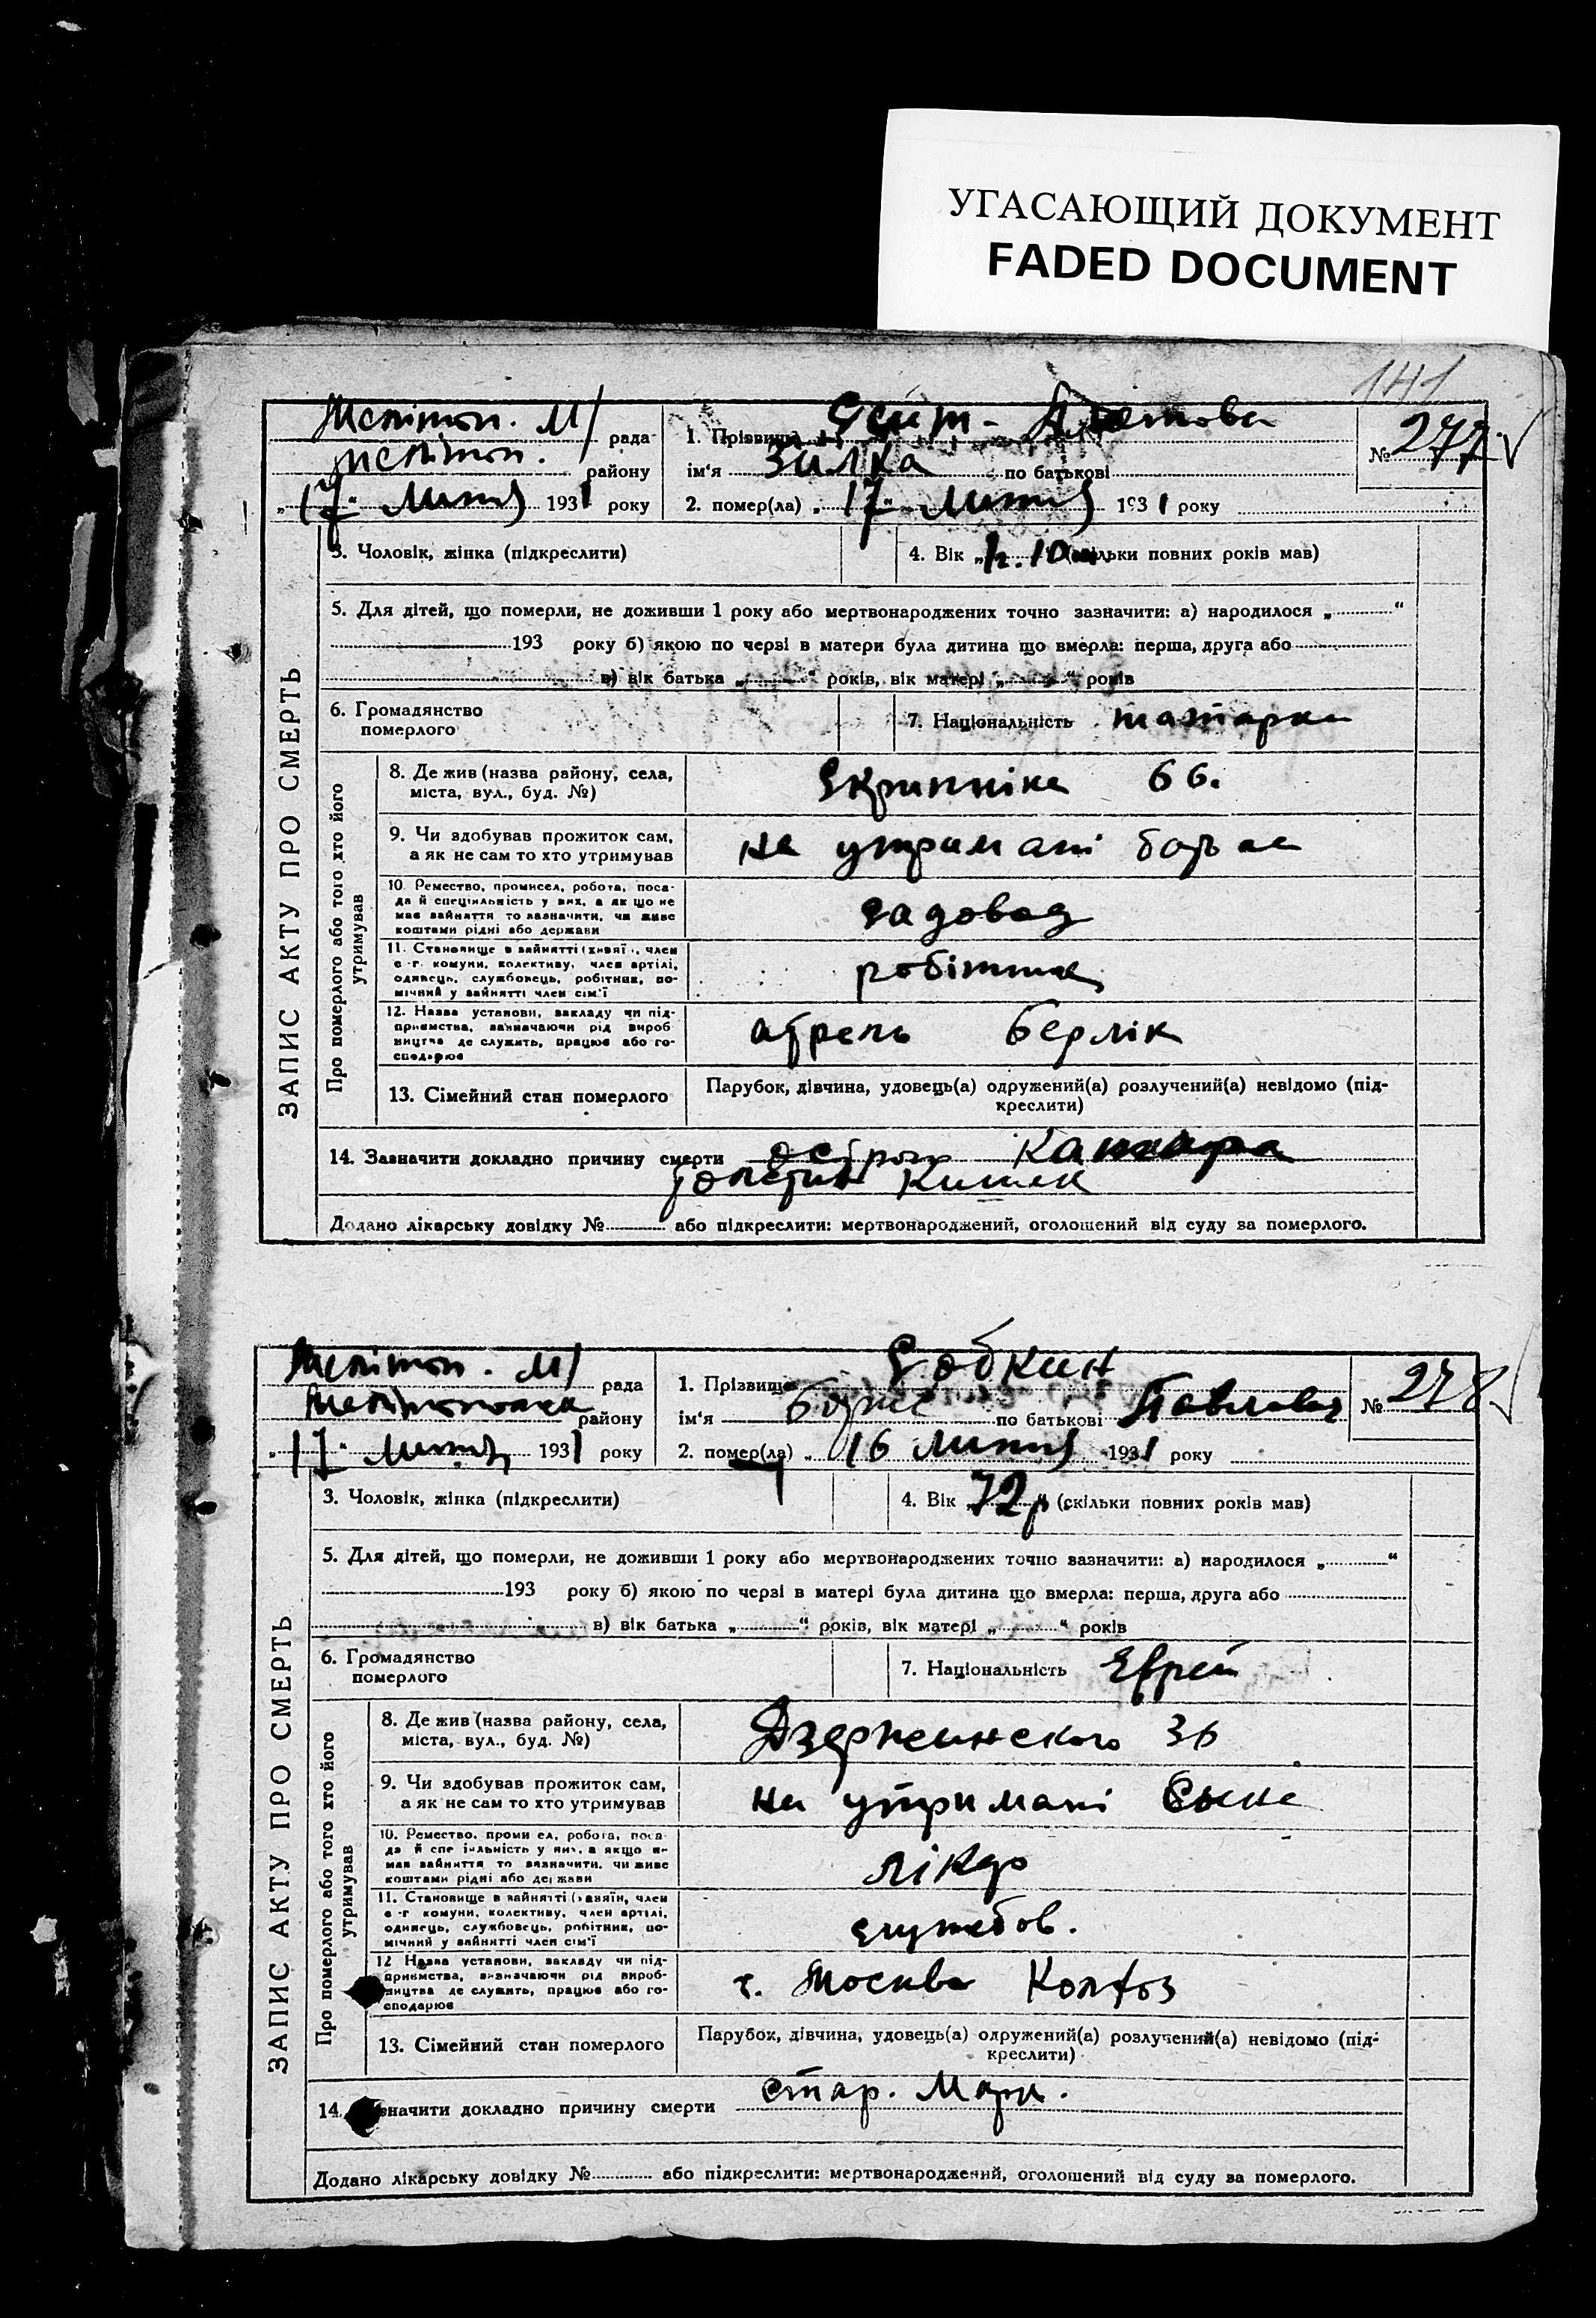 УГАСАЮЩИЙ ДОКУМЕНТ
FADED DOCUMENT
141
ЗАПИС АКТУ ПРО СМЕРТЬ
Мелітоп. М/ рада
Мелітоп. району
„17“ Липня 1931 року
1. Прізвище Сеит-
ім‘я по батькові
№ 277
2. помер(ла) „17“ Липня 1931 року
3. Чоловік, жінка (підкреслити)
4. Вік (скільки повних років мав)
5. Для дітей, що померли, не доживши 1 року або мертвонароджених точно зазначити: а) народилося „ “
193 року б) якою по черзі в матери була дитина що вмерла: перша, друга або
в) вік батька „ “ років, вік матері „ “ років
6. Громадянство померлого
7. Національність татарка
Про померлого або того хто його утримував
8. Де жив (назва району, села,
міста, вул., буд. №)
Скрипніка 66.
9. Чи здобував прожиток сам,
а як не сам то хто утримував
На утримані батька
10. Ремество, промисел, робота, поса-
да й спеціяльність у них, а як що не
мав зайняття то зазначити, чи живе
коштами рідні або держави
11. Становище в зайнятті (хазяї , член
с -г. комуни, колективу, член артілі,
одинець, службовець, робітник, по-
мічний у зайнятті член сім‘ї
робітник
12. Назва установи, закладу чи під-
приємства, зазначаючи рід вироб
ництва де служить, працює або го-
сподарює
13. Сімейний стан померлого
Парубок, дівчина, удовець(а) одружений(а) розлучений(а) невідомо (під-
креслити)
14. Зазначити докладно причину смерти
Кишек
Додано лікарську довідку № або підкреслити: мертвонароджений, оголошений від суду за померлого.
ЗАПИС АКТУ ПРО СМЕРТЬ
Мелітоп. М/ рада
району
„17“ Липня 1931 року
1. Прізвище Собкин
ім‘я Борис по батькові Павлович
№ 278
2. помер(ла) „16 Липня 1931 року
3. Чоловік, жінка (підкреслити)
4. Вік „72 р“ (скільки повних років мав)
5. Для дітей, що померли, не доживши 1 року або мертвонароджених точно зазначити: а) народилося „ “
193 року б) якою по черзі в матері була дитина що вмерла: перша, друга або
в) вік батька „ “ років, вік матері „ “ років
6. Громадянство померлого
7. Національність Еврей
Про померлого або того хто його утримував
8. Де жив (назва району, села,
міста, вул., буд. №)
Дзержинского 36
9. Чи здобував прожиток сам,
а як не сам то хто утримував
На утримані Сына
10. Ремество, проми ел, робота, поса-
да й спе іяльність у них, а якщо н-
мав зайняття то зазначити, чи живе
коштами рідні або держави
лікар
11. Становище в зайнятті (хазяїн, член
с -г комуни, колективу, член артілі,
одинець, службовець, робітник, по-
мічний у зайнятті член сім‘ї
службов.
12 Назва установи, закладу чи під-
приємства, зазначаючи рід вироб-
ництва де служить, працює або го-
сподарює
г. Москва
13. Сімейний стан померлого
Парубок, дівчина, удовець(а) одружений(а) розлучений(а) невідомо (під-
креслити)
14. Зазначити докладно причину смерти стар.
Додано лікарську довідку № або підкреслити: мертвонароджений, оголошений від суду за померлого.